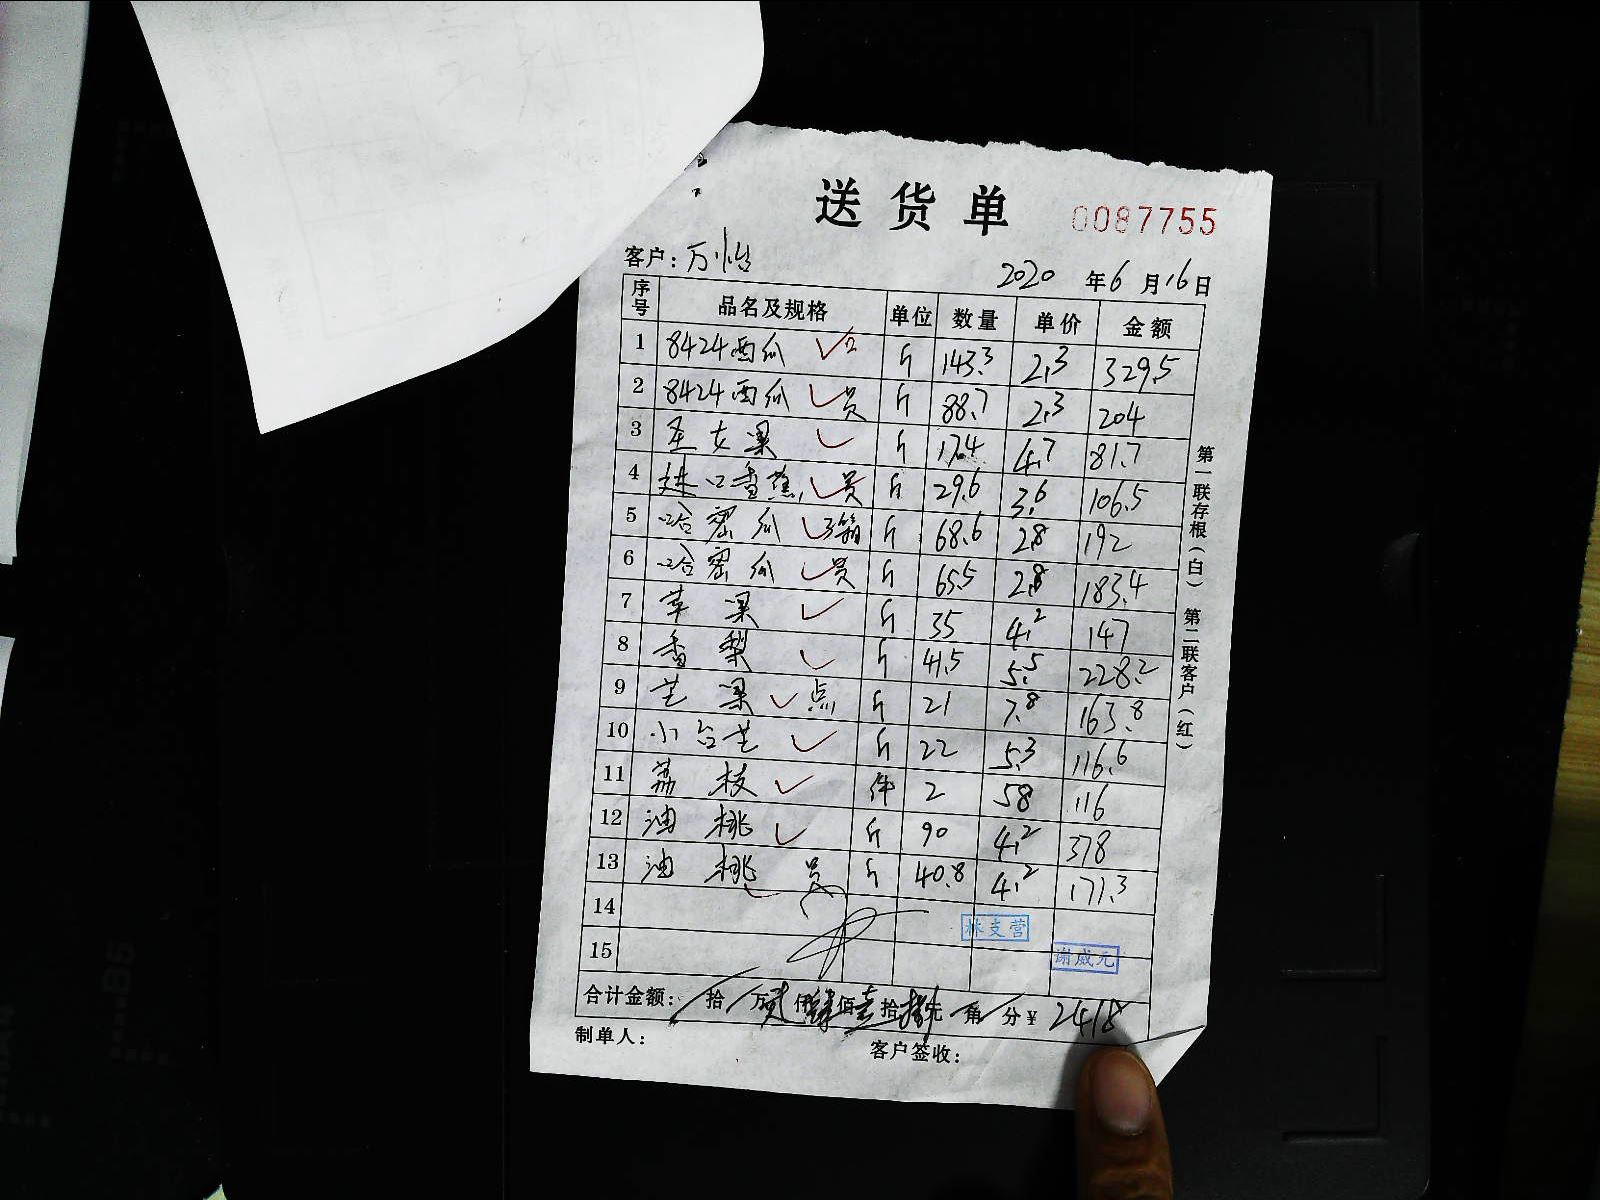 送货单 0087755
客户：万怡 2020年6月16日
序号 品名及规格 单位 数量 单价 金额
1 8424西瓜 斤 143.3 2.3 329.5
2 8424西瓜 员 斤 88.7 2.3 204
3 圣女果 斤 17.4 4.7 81.7
4 进口香蕉 员 斤 29.6 3.6 106.5
5 哈密瓜 3箱 斤 68.6 2.8 192
6 哈密瓜 员 斤 65.5 2.8 183.4
7 苹果 斤 35 4.2 147
8 香梨 斤 41.5 5.5 228.2
9 芒果 点 斤 21 7.8 163.8
10 小台芒 斤 22 5.3 116.6
11 荔枝 件 2 58 116
12 油桃 斤 90 4.2 378
13 油桃 员 斤 40.8 4.2 171.3
14 林支营
15 谢威元
合计金额： 拾 万 贰 仟 肆 佰 壹 拾 捌 元 角 分 ¥ 2418
制单人： 客户签收：
第一联存根（白） 第二联客户（红）
B5